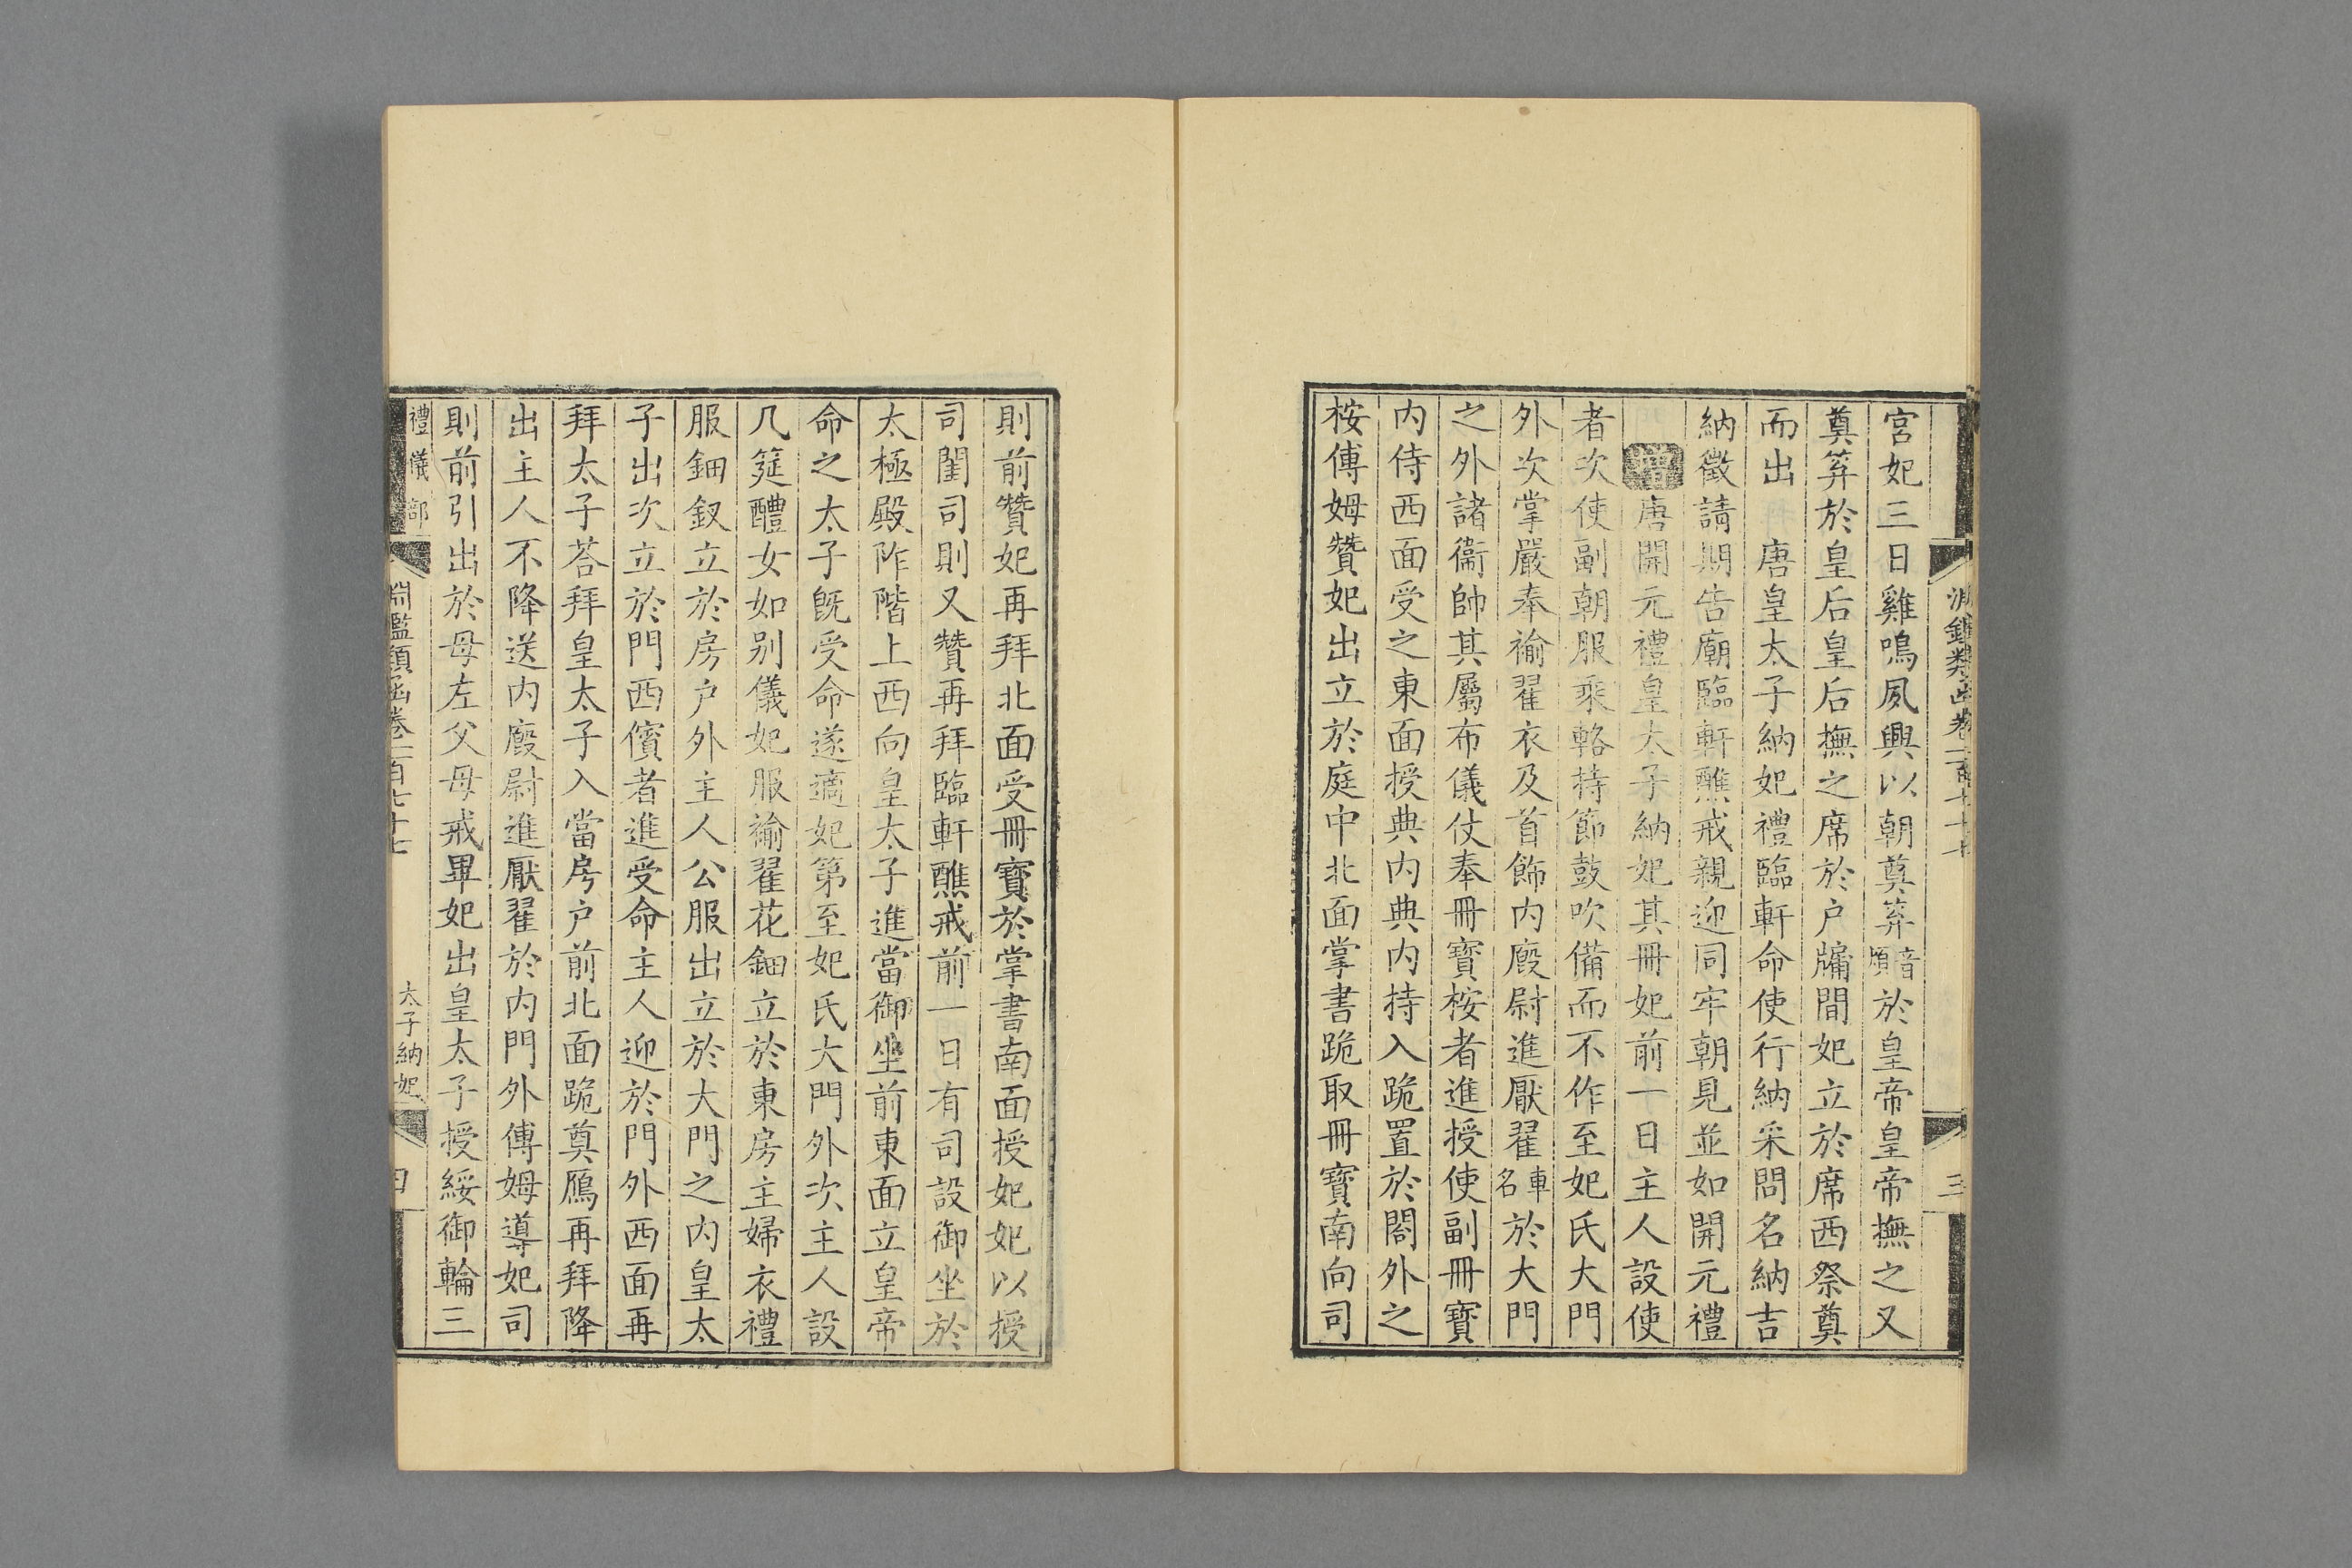 淵鑑類函卷二百七十七
三
宮妃三日雞鳴夙興以朝奠笲音煩於皇帝皇帝撫之又
奠笲於皇后皇后撫之席於户牖間妃立於席西祭奠
而出 唐皇太子納妃禮臨軒命使行納采問名納吉
納徵請期告廟臨軒醮戒親迎同牢朝見並如開元禮
增唐開元禮皇太子納妃其冊妃前一日主人設使
者次使副朝服乘輅持節鼓吹備而不作至妃氏大門
外次掌嚴奉褕翟衣及首飾内廄尉進厭翟車名於大門
之外諸衞帥其屬布儀仗奉冊寳桉者進授使副冊寳
内侍西面受之東面授典内典内持入跪置於閤外之
桉傅姆贊妃出立於庭中北面掌書跪取冊寳南向司
則前贊妃再拜北面受冊寳於掌書南面授妃妃以授
司閨司則又贊再拜臨軒醮戒前一日有司設御坐於
太極殿阼階上西向皇太子進當御坐前東面立皇帝
命之太子旣受命遂適妃第至妃氏大門外次主人設
几筵醴女如别儀妃服褕翟花鈿立於東房主婦衣禮
服鈿釵立於房户外主人公服出立於大門之内皇太
子出次立於門西儐者進受命主人迎於門外西面再
拜太子荅拜皇太子入當房户前北面跪奠鴈再拜降
出主人不降送内廄尉進厭翟於内門外傅姆導妃司
則前引出於母左父母戒畢妃出皇太子授綏御輪三
禮儀部
淵鑑類函卷二百七十七
太子納妃
四